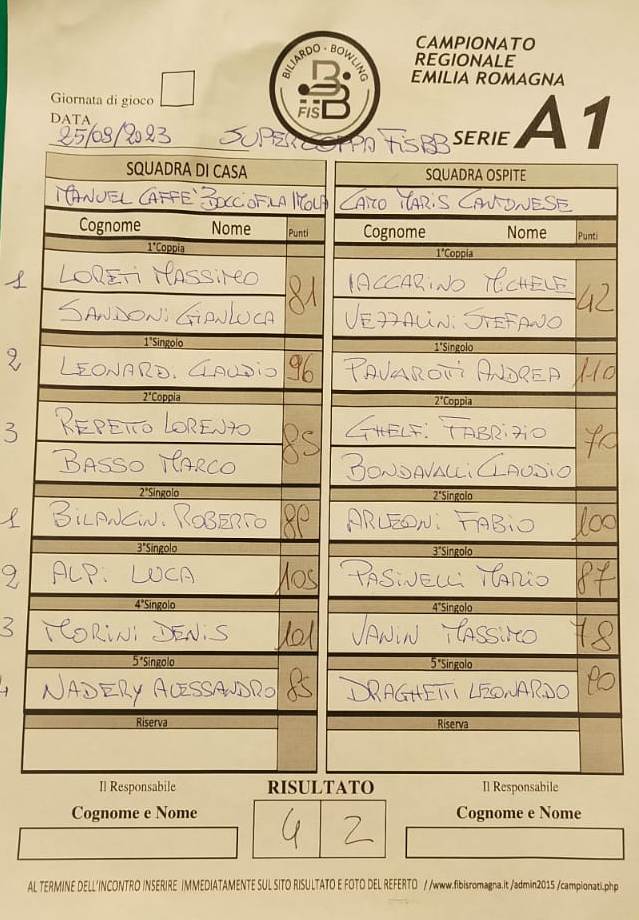 BILIARDO - BOWLING
FISBB
CAMPIONATO
REGIONALE
EMILIA ROMAGNA
Giornata di gioco
DATA
25/09/2023 SUPERCOPPA FISBB SERIE A1
SQUADRA DI CASA SQUADRA OSPITE
MANUEL CAFFE' BOCCIOFILA IMOLA CARO MARIS CANTONESE
Cognome Nome Punti Cognome Nome Punti
1°Coppia 1°Coppia
1 LORETI MASSIMO 81 IACCARINO MICHELE 42
SANDONI GIANLUCA VEZZALINI STEFANO
1°Singolo 1°Singolo
2 LEONARDI CLAUDIO 96 PAVAROTTI ANDREA 110
2°Coppia 2°Coppia
3 REPETTO LORENZO 85 GHELFI FABRIZIO 70
BASSO MARCO BONDAVALLI CLAUDIO
2°Singolo 2°Singolo
1 BILANCINI ROBERTO ARLEONI FABIO 100
3°Singolo 3°Singolo
2 ALPI LUCA 105 PASINELLI MARIO 87
4°Singolo 4°Singolo
3 MORINI DENIS 101 VANIN MASSIMO 78
5°Singolo 5°Singolo
4 NADERY ALESSANDRO 85 DRAGHETTI LEONARDO
Riserva Riserva
Il Responsabile RISULTATO Il Responsabile
Cognome e Nome 4 2 Cognome e Nome
AL TERMINE DELL'INCONTRO INSERIRE IMMEDIATAMENTE SUL SITO RISULTATO E FOTO DEL REFERTO //www.fibisromagna.it /admin2015 /campionati.php